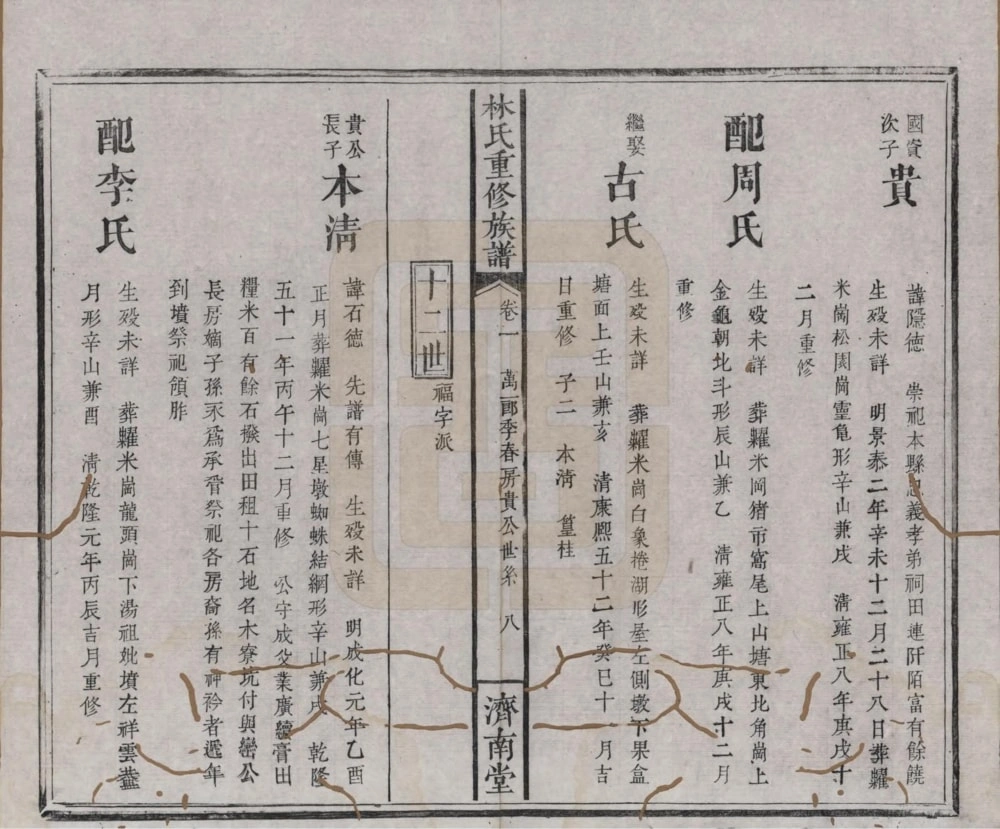 國資次子
貴
諱隱德 崇祀本縣忠義孝弟祠田連阡陌富有餘饒
生殁未詳 明景泰二年辛未十二月二十八日葬糶
米崗松園崗靈龟形辛山兼戌 清雍正八年庚戌十
二月重修
配周氏
生殁未詳 葬糶米岡猪市窩尾上山塘東北角崗上
金龜朝北斗形辰山兼乙 清雍正八年庚戌十二月
重修
繼娶
古氏
生殁未詳 葬糶米崗白象捲湖形屋左側墩下果盒
塘面上壬山兼亥 清康熙五十二年癸巳十 月吉
日重修 子二 本清 篁桂
林氏重修族譜
卷一 萬一郎季春房貴公世系 八
濟南堂
十二世
福字派
貴公長子
本清
諱石德 先譜有傳 生殁未詳 明成化元年乙酉
正月葬糶米崗七星墩蜘蛛結網形辛山兼戌 乾隆
五十一年丙午十二月重修 公守成父業廣續膏田
糧米百有餘石撥出田租十石地名木寮坑付與巒公
長房嫡子孫永爲承膺祭祀各房裔孫有神衿者遞年
到墳祭祀領胙
配李氏
生殁未詳 葬糶米崗龍頭崗下湯祖妣墳左祥雲葢
月形辛山兼酉 清乾隆元年丙辰吉月重修